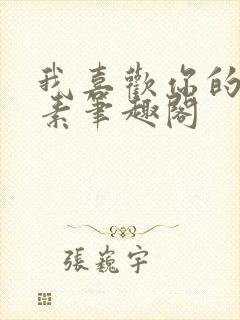 我喜歡你的
素筆趣閣
張巍宇